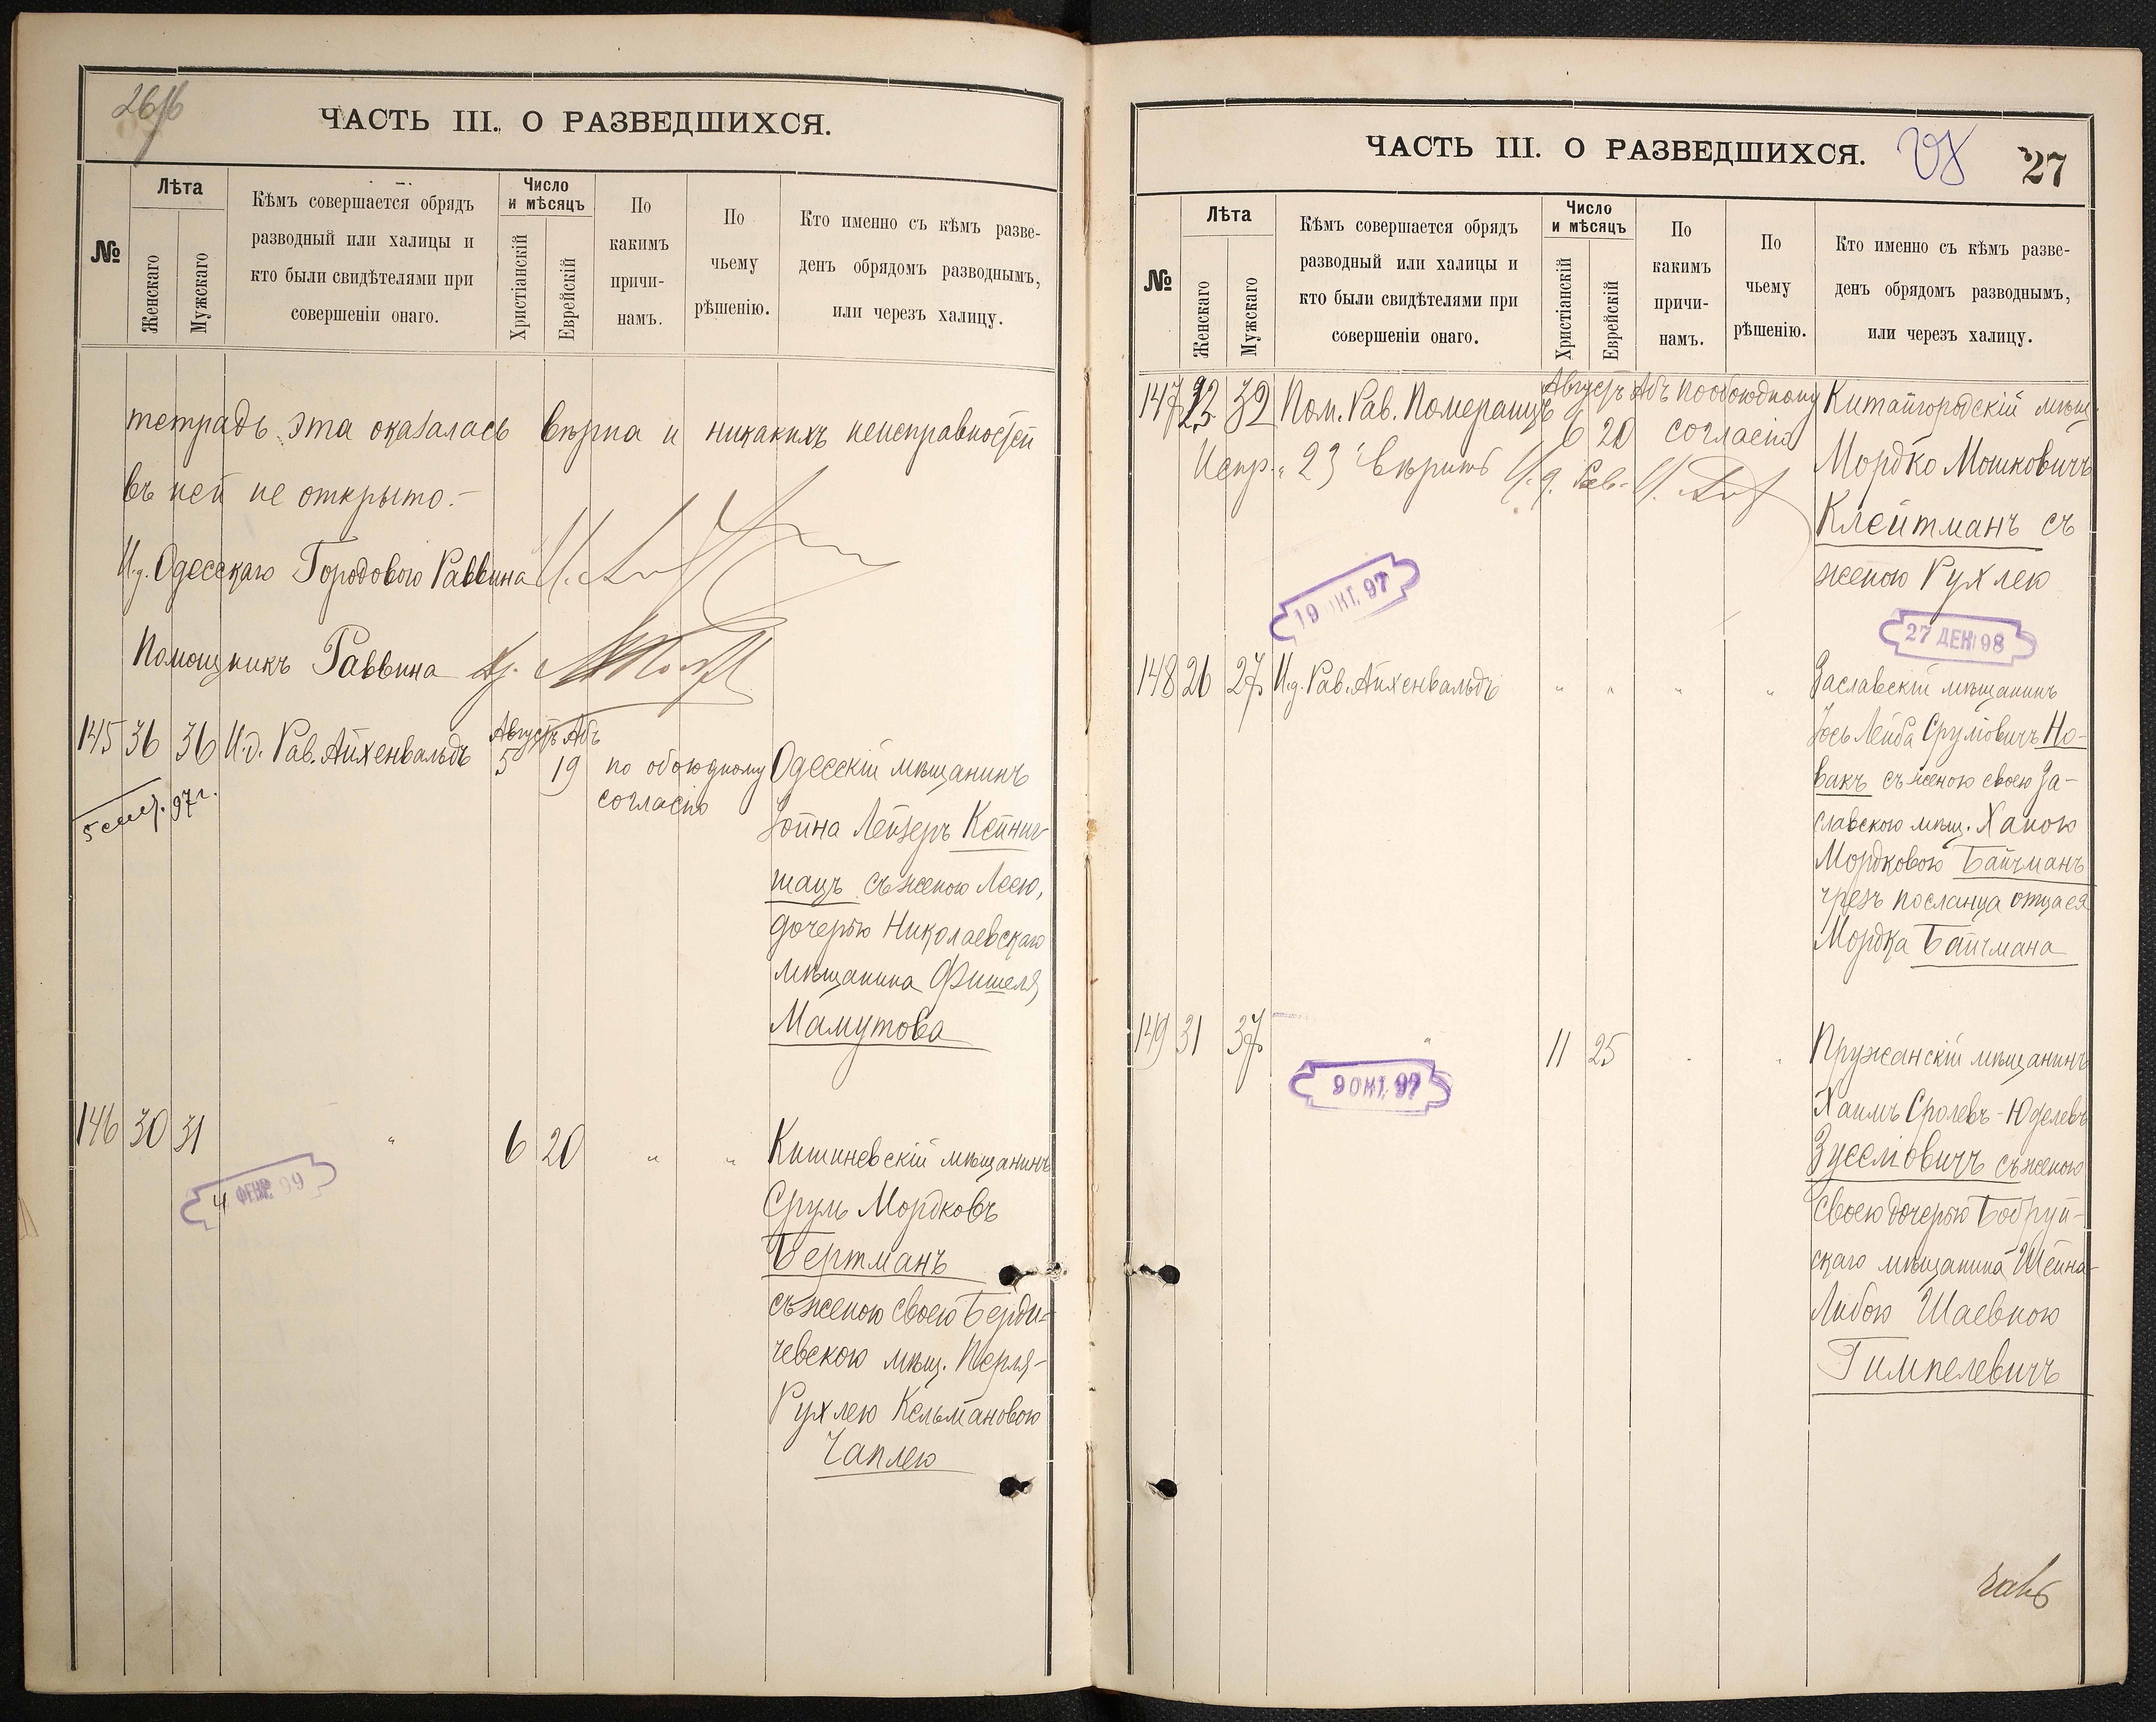 26
ЧАСТЬ III. О РАЗВЕДШИХСЯ.
№
Лѣта
Женскаго
Мужскаго
Кѣмъ совершается обрядъ
разводный или халицы и
кто были свидѣтелями при
совершеніи онаго.
Число
и мѣсяцъ
Христіанскій
Еврейскій
По
какимъ
причи-
намъ.
По
чьему
рѣшенію.
Кто именно съ кѣмъ разве-
денъ обрядомъ разводнымъ,
или черезъ халицу.
тетрадь эта оказалась вѣрна и никакихъ неисправностей
въ ней не открыто.-
И.д. Одесскаго Городового Раввина
Помощникъ Раввина
145 36 36 И.д. Рав. Айхенвальдъ Августъ 5 Абъ 19 по обоюдному
согласію
5 сент. 97 г.
Одесскій мѣщанинъ
Іойна Лейзеръ Кейниг-
шацъ съ женою Леею,
дочерью Николаевскаго
мѣщанина Фишеля
Мамутова
146 30 31 " 6 20 " "
4 ФЕВР. 99
Кишиневскій мѣщанинъ
Сруль Мордковъ
Бертманъ
съ женою своею Берди-
чевскою мѣщ. Перля-
Рухлею Кельмановою
Чаплею
ЧАСТЬ III. О РАЗВЕДШИХСЯ.
27
№
Лѣта
Женскаго
Мужскаго
Кѣмъ совершается обрядъ
разводный или халицы и
кто были свидѣтелями при
совершеніи онаго.
Число
и мѣсяцъ
Христіанскій
Еврейскій
По
какимъ
причи-
намъ.
По
чьему
рѣшенію.
Кто именно съ кѣмъ разве-
денъ обрядомъ разводнымъ,
или черезъ халицу.
147 23 32 Пом. Рав. Померанцъ Августъ 6 Абъ 20 по обоюдному
согласію
Испр. "23" вѣрить И.д. Рав.
Китайгородскій мѣщ.
Мордко Мошковичъ
Клейтманъ съ
женою Рухлею
19 ОКТ. 97
27 ДЕК 98
148 26 27 И.д. Рав. Айхенвальдъ " " " "
Заславскій мѣщанинъ
Іось Лейба Срулiовичъ Но-
вакъ съ женою своею За-
славскою мѣщ. Ханою
Мордковою Байчманъ
чрезъ посланца отца ея
Мордка Байчмана
149 31 37 " 11 25 " "
9 ОКТ. 97
Пружанскій мѣщанинъ
Хаимъ Сролевъ-Юделевъ
Зуселіовичъ съ женою
своею дочерью Бобруй-
скаго мѣщанина Шейна-
Либою Шаевною
Гимпелевичъ